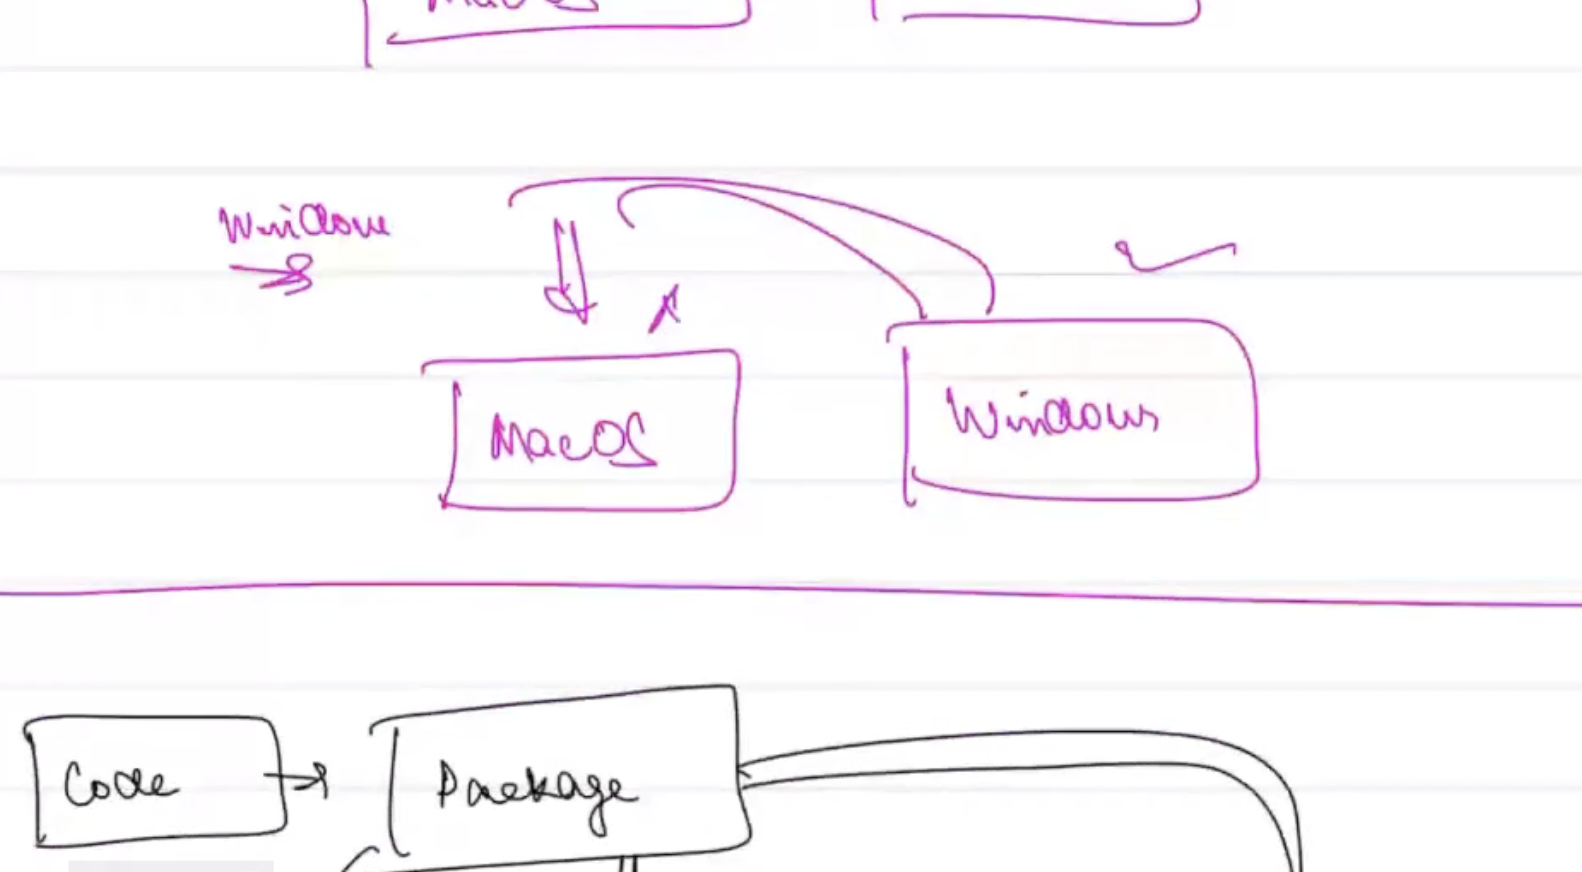 MacOS
Window
MacOS
Windows
Code
Package